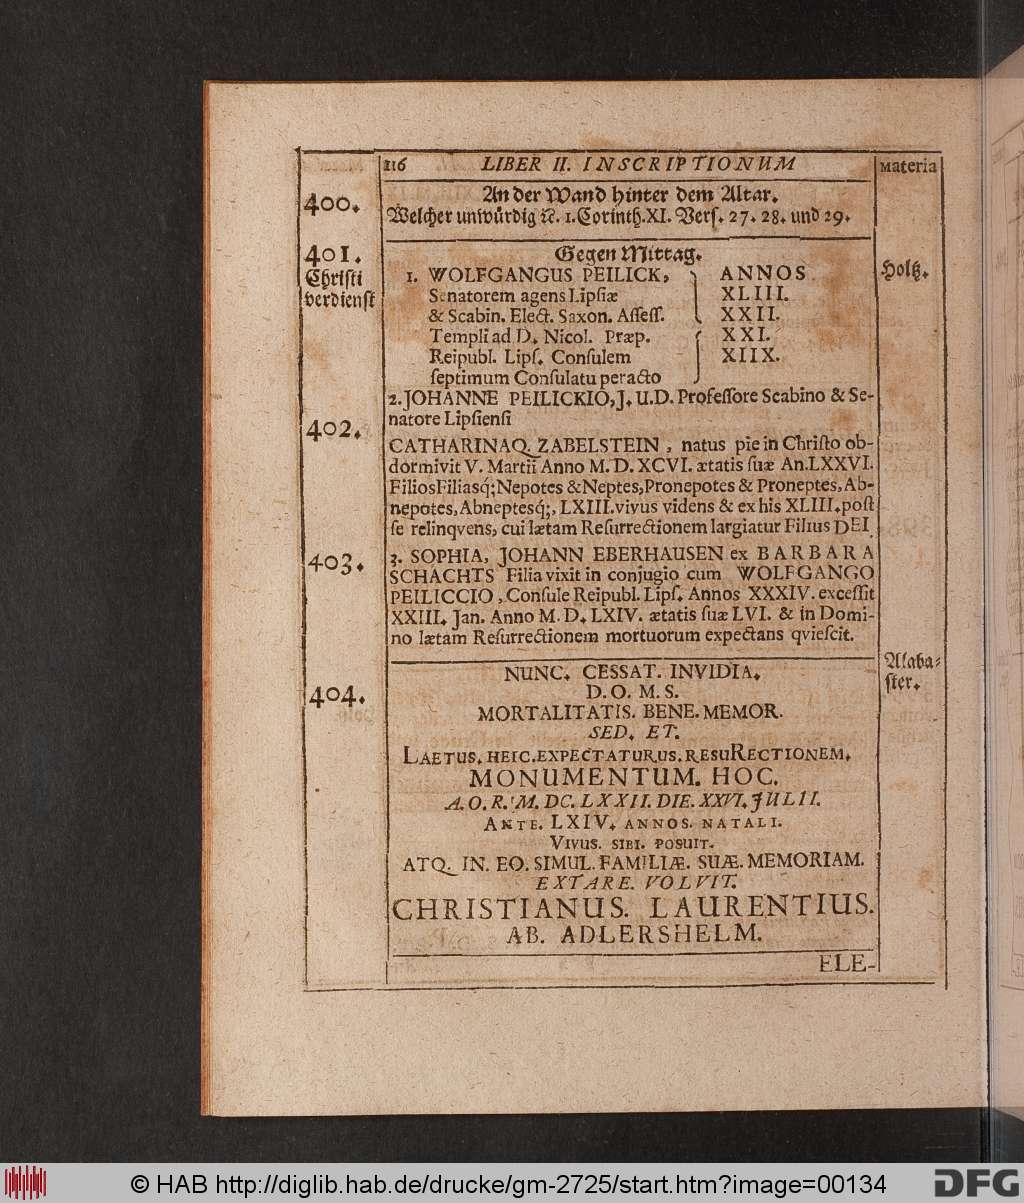 116 LIBER II. INSCRIPTIONUM Materia
400. An der Wand hinter dem Altar.
Welcher unwürdig ꝛc. 1. Corinth. XI. Vers. 27. 28. und 29.
401. Gegen Mittag.
Christi verdienst
Holtz.
1. WOLFGANGUS PEILICK, ANNOS
Senatorem agens Lipſiæ XLIII.
& Scabin. Elect. Saxon. Aſſeſſ. XXII.
Templi ad D. Nicol. Præp. XXI.
Reipubl. Lipſ. Conſulem XIIX.
ſeptimum Conſulatu peracto
2. JOHANNE PEILICKIO, J. U. D. Profeſſore Scabino & Se-
natore Lipſienſi
402.
CATHARINAQ. ZABELSTEIN, natus pie in Chriſto ob-
dormivit V. Martii Anno M. D. XCVI. ætatis ſuæ An. LXXVI.
Filios Filiasq́; Nepotes & Neptes, Pronepotes & Proneptes, Ab-
nepotes, Abneptesq́;, LXIII. vivus videns & ex his XLIII. poſt
ſe relinqvens, cui lætam Reſurrectionem largiatur Filius DEI
403. 3. SOPHIA, JOHANN EBERHAUSEN ex BARBARA
SCHACHTS Filia vixit in conjugio cum WOLFGANGO
PEILICCIO, Conſule Reipubl. Lipſ. Annos XXXIV. exceſſit
XXIII. Jan. Anno M. D. LXIV. ætatis ſuæ LVI. & in Domi-
no lætam Reſurrectionem mortuorum expectans qvieſcit.
404. NUNC. CESSAT. INVIDIA.
Alaba-
ſter.
D. O. M. S.
MORTALITATIS. BENE. MEMOR.
SED. ET.
LAETUS. HEIC. EXPECTATURUS. RESURECTIONEM.
MONUMENTUM. HOC.
A. O. R. M. DC. LXXII. DIE. XXVI. JULII.
ANTE. LXIV. ANNOS. NATALI.
VIVUS. SIBI. POSUIT.
ATQ. IN. EO. SIMUL. FAMILIÆ. SUÆ. MEMORIAM.
EXTARE. VOLVIT.
CHRISTIANUS. LAURENTIUS.
AB. ADLERSHELM.
ELE-
© HAB http://diglib.hab.de/drucke/gm-2725/start.htm?image=00134
DFG